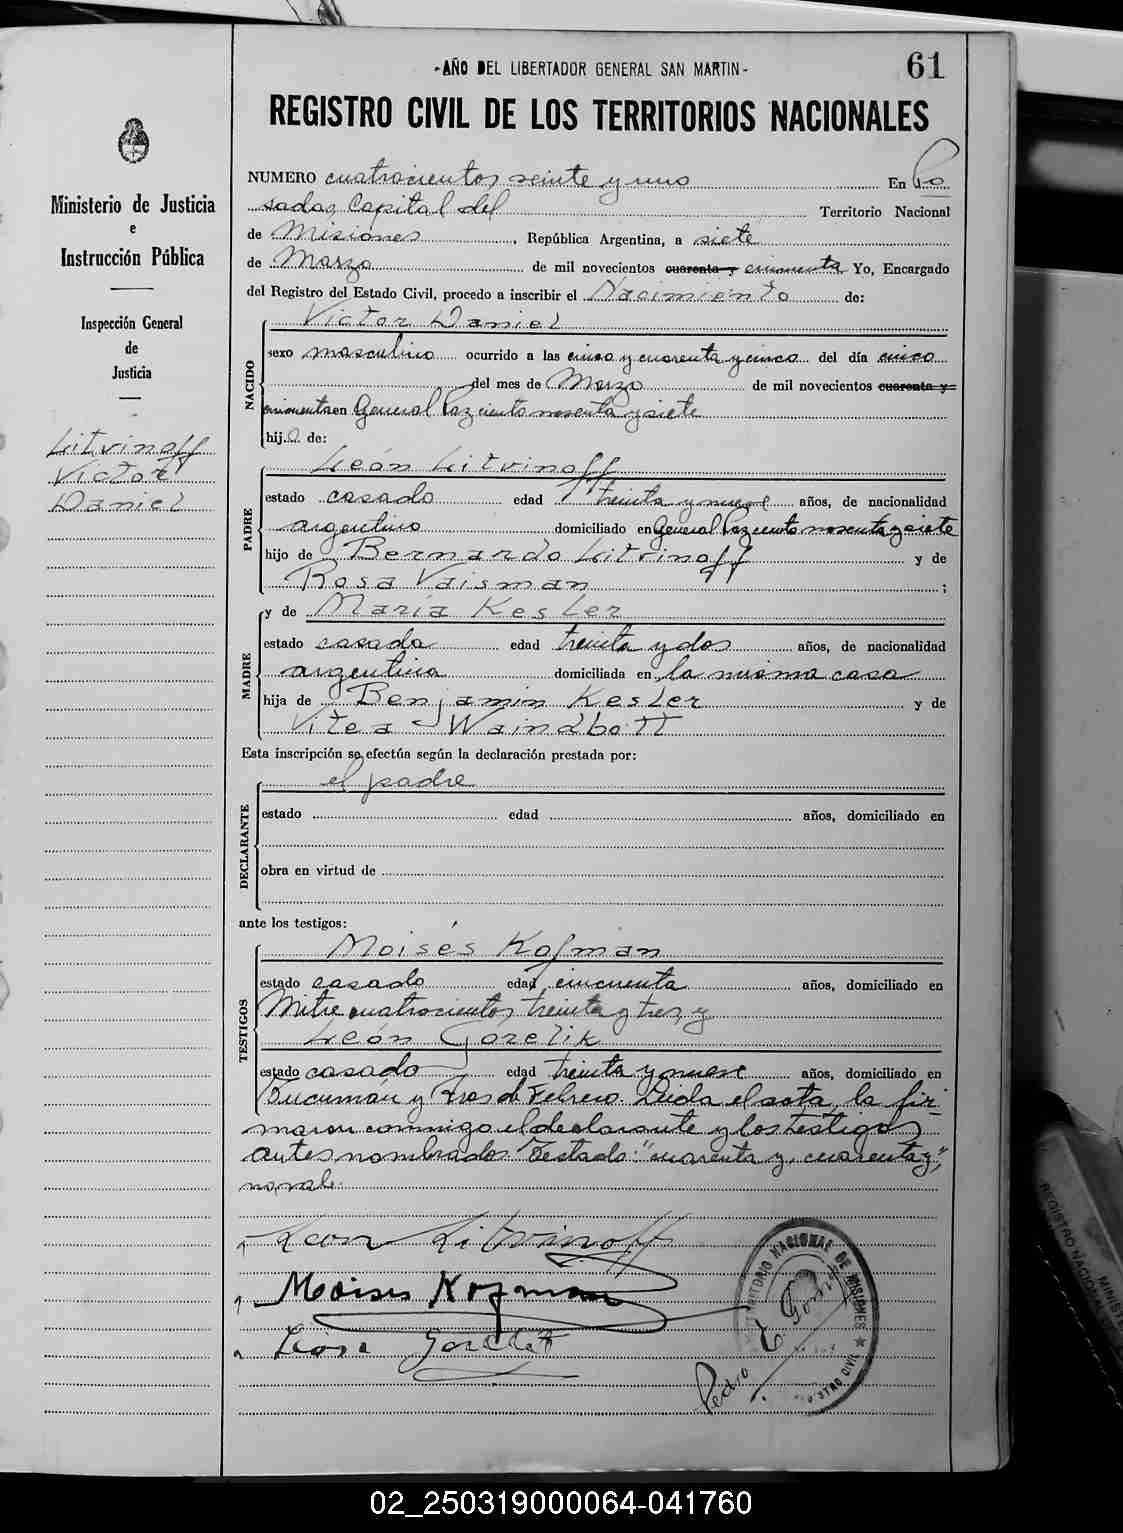 -AÑO DEL LIBERTADOR GENERAL SAN MARTIN-
61
REGISTRO CIVIL DE LOS TERRITORIOS NACIONALES
Ministerio de Justicia
e
Instrucción Pública
Inspección General
de
Justicia
Litvinoff
Victor
Daniel
NUMERO cuatrocientos veinte y uno En Po
sadas, Capital del Territorio Nacional
de Misiones, República Argentina, a siete
de Marzo de mil novecientos cuarenta y cincuenta Yo, Encargado
del Registro del Estado Civil, procedo a inscribir el Nacimiento de:
NACIDO
Victor Daniel
sexo masculino ocurrido a las cinco y cuarenta y cinco del día cinco
del mes de Marzo de mil novecientos cuarenta y
cincuenta en General Paz ciento noventa y siete
hijo de:
PADRE
León Litvinoff
estado casado edad treinta y nueve años, de nacionalidad
argentino domiciliado en General Paz ciento noventa y siete
hijo de Bernardo Litvinoff y de
Rosa Vaisman ;
MADRE
y de María Kesler
estado casada edad treinta y dos años, de nacionalidad
argentina domiciliada en la misma casa
hija de Benjamín Kesler y de
Vitea Waindbott
Esta inscripción se efectúa según la declaración prestada por:
DECLARANTE
el padre
estado edad años, domiciliado en
obra en virtud de
ante los testigos:
TESTIGOS
Moisés Kofman
estado casado edad cincuenta años, domiciliado en
Mitre cuatrocientos treinta y tres, y
León Gorelik
estado casado edad treinta y nueve años, domiciliado en
Tucumán y Tres de Febrero. Leída el acta, la fir-
maron conmigo el declarante y los testigos
antes nombrados. Testado: "cuarenta y, cuarenta y",
no vale.
Leon Litvinoff
Moises Kofman
Leon Gorelik
TERRITORIO NACIONAL DE MISIONES
REGISTRO CIVIL
Pedro E. Gomez
MINISTE
REGISTRO NACIONAL
02_250319000064-041760